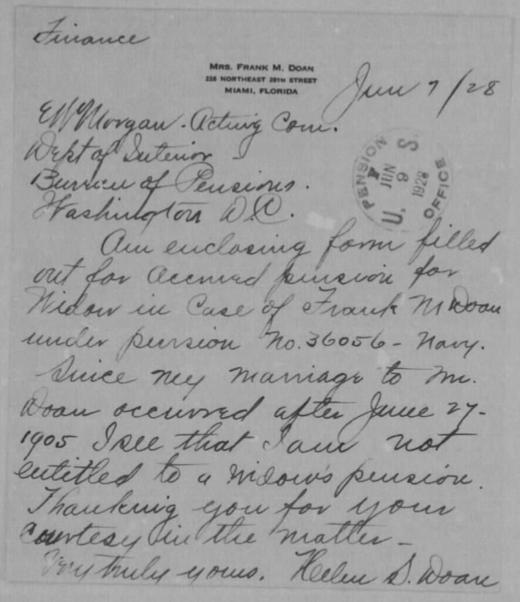 Finance
MRS. FRANK M. DOAN
228 NORTHEAST 28TH STREET
MIAMI, FLORIDA
Jun 7/28
EW Morgan - Acting Com.
Dept of Interior
Bureau of Pensions.
Washington D.C.
U.S. PENSION OFFICE
JUN
1928
Am enclosing form filled
out for accrued pension for
Widow in Case of Frank M Doan
under pension No. 36056 - Navy.
Since my marriage to Mr.
Doan occurred after June 27-
1905 I see that I am not
entitled to a widow's pension.
Thanking you for your
courtesy in the matter -
Very truly yours. Helen S. Doan